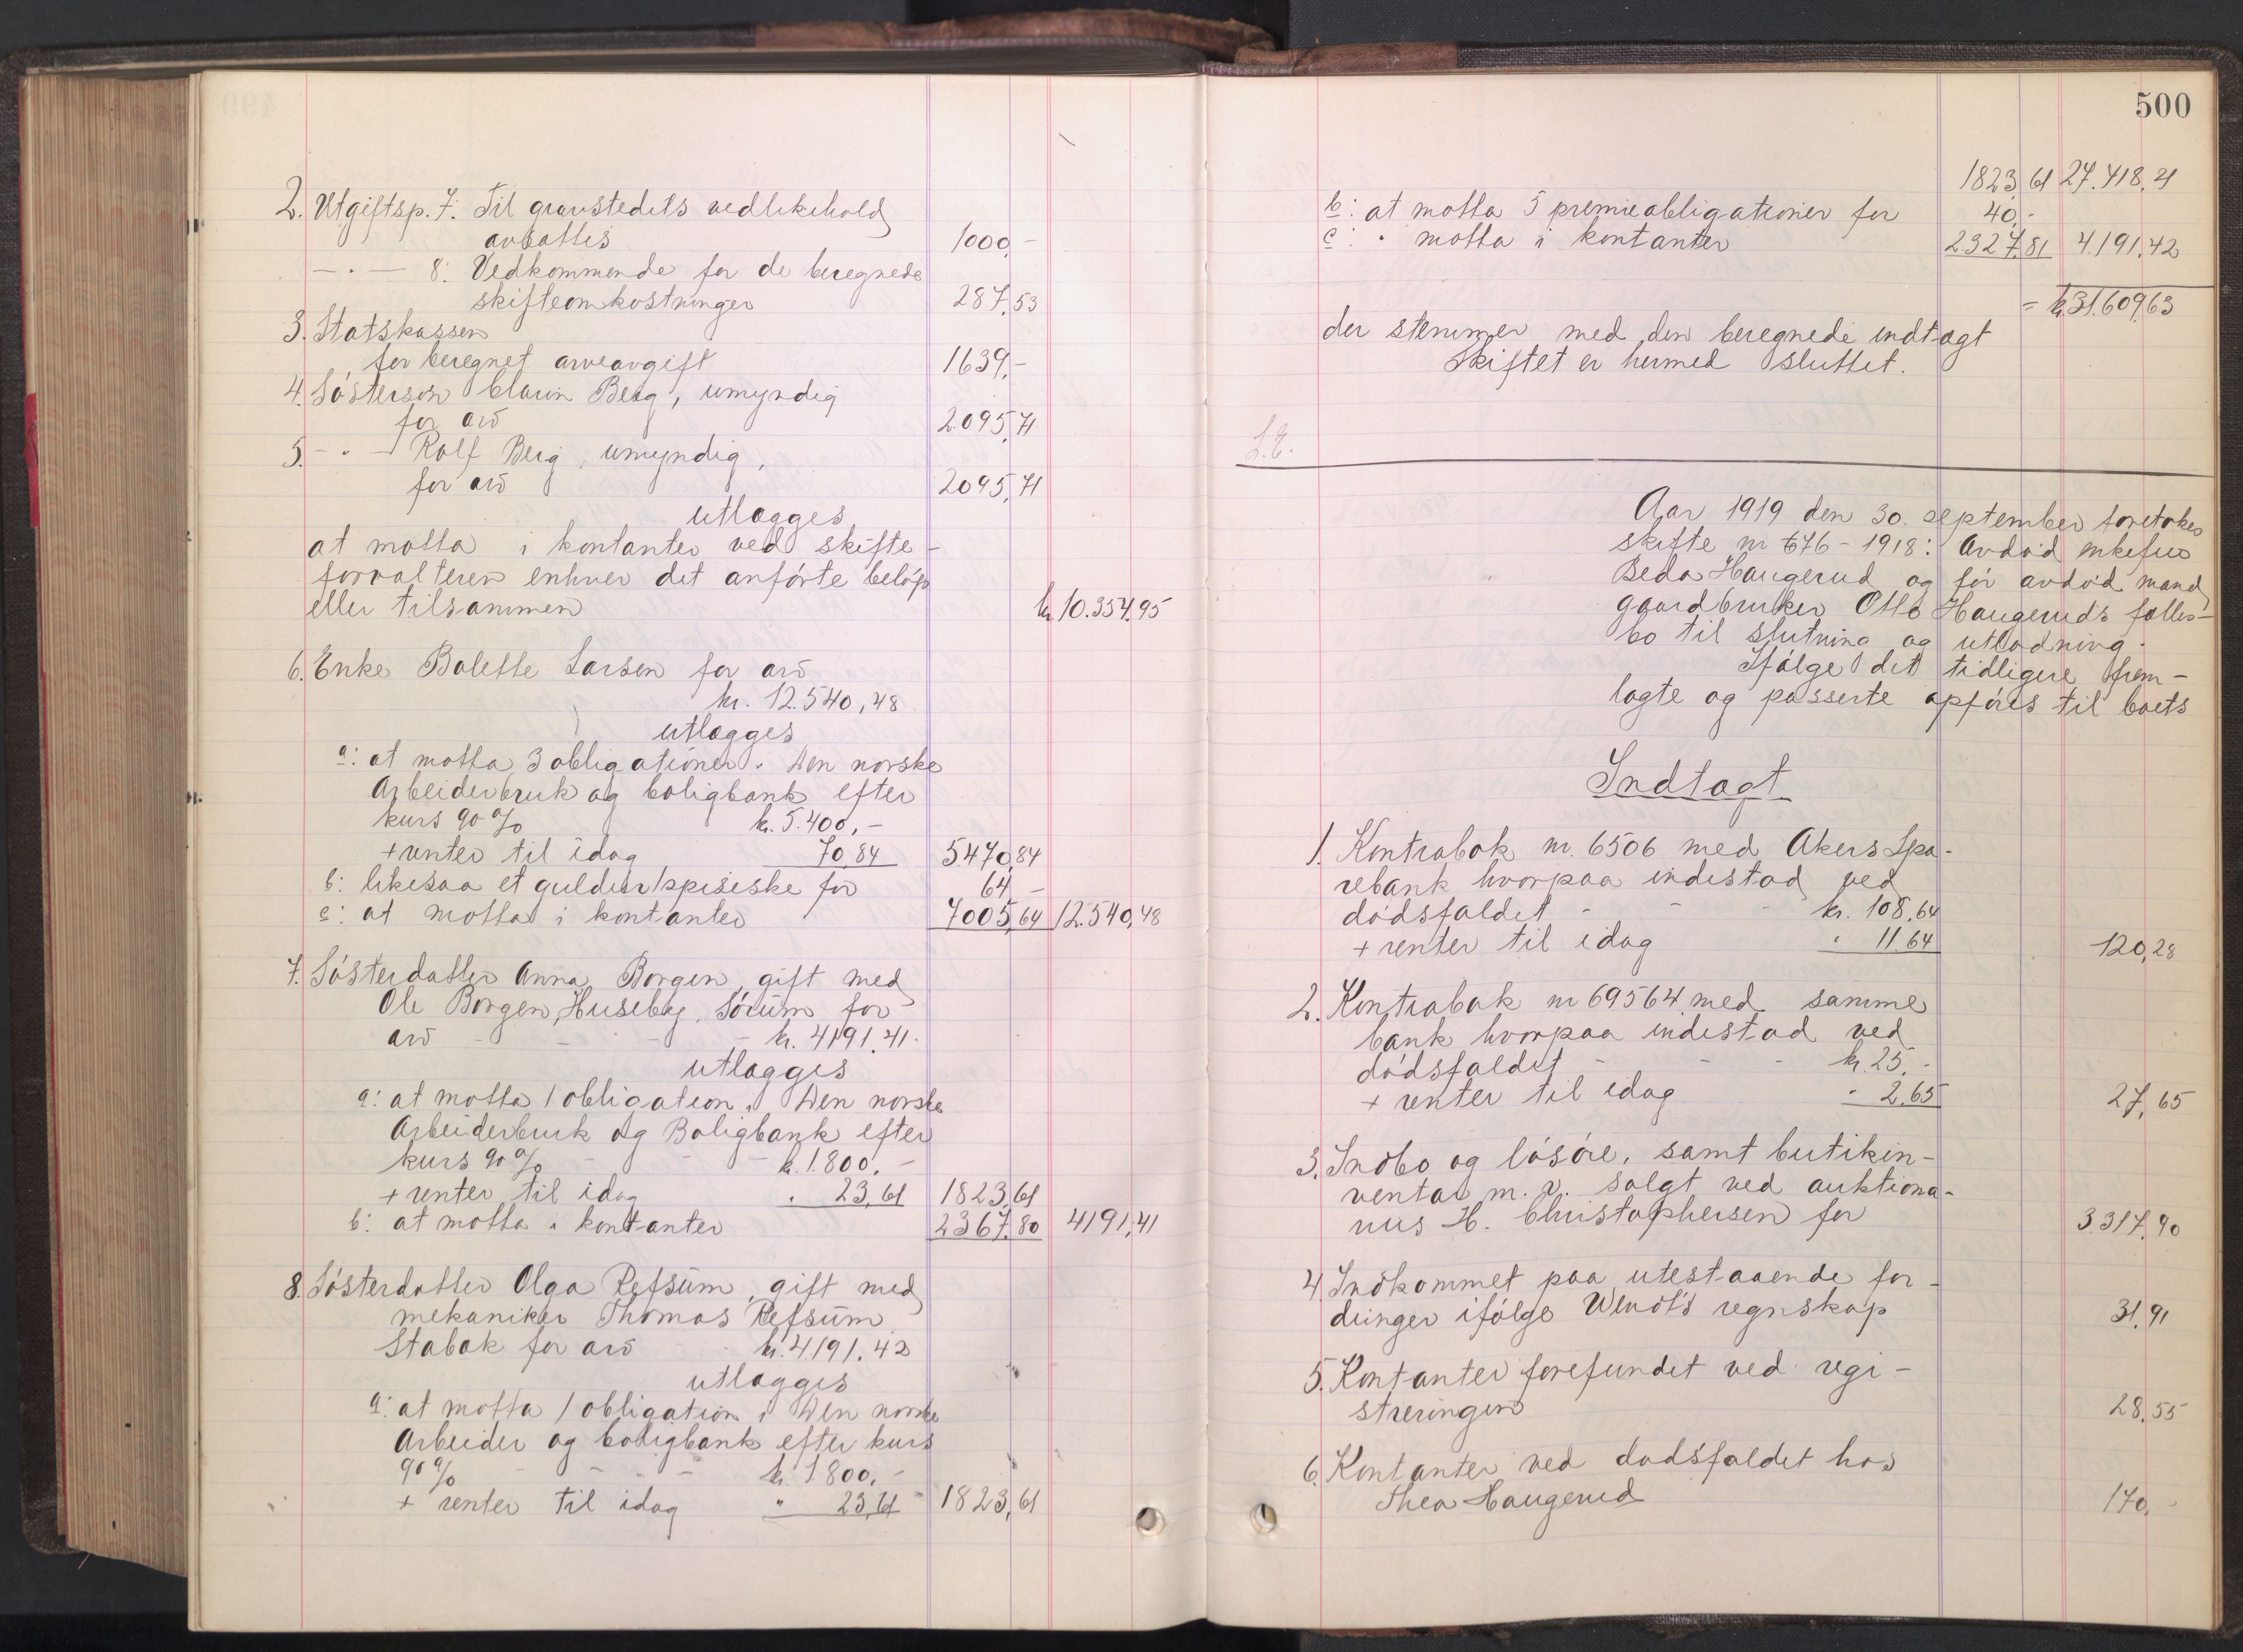 2. Utgiftsp. 7. Til gravstedets vedlikehold
avsattes 1000,-
— " — 8: Vedkommende for de beregnede
skifteomkostninger 287,53
3. Statskassen
for beregnet arveavgift 1639,-
4. Søstersøn Clarin Berg, umyndig
for arv 2.095,71
5. - " - Rolf Berg, umyndig,
for arv 2095,71
utlægges
at motta i kontanter ved skifte-
forvalteren enhver det anførte beløp
eller tilsammen kr. 10.354,95
6. Enke Bolette Larsen for arv
kr. 12.540,48
utlægges
a: at motta 3 obligationer i Den norske
Arbeiderbruk og boligbank efter
kurs 90% kr. 5.400,-
+ renter til idag 70,84 5470,84
b: likesaa et guldur for 64,-
c: at motta i kontanter 7005,64 12.540,48
7. Søsterdatter Anna Borgen, gift med
Ole Borgen, Huseby, Sørum for
arv - - - kr. 4191,41.
utlægges
a: at motta 1 obligation i Den norske
Arbeiderbruk og Boligbank efter
kurs 90% - - - kr. 1.800,-
+ renter til idag " 23,61 1823,61
b: at motta i kontanter 2367,80 4191,41
8. Søsterdatter Olga Refsum, gift med
mekaniker Thomas Refsum
Stabæk for arv kr. 4191,42
utlægges
a: at motta 1 obligation i Den norske
Arbeider og boligbank efter kurs
90% - - - kr. 1.800,-
+ renter til idag " 23,61 1823,61
500
1823,61 27.418,21
b: at motta 5 premieobligationer for 40,-
c: " motta i kontanter 2327,81 4.191,42
= kr. 31.609,63
der stemmer med den beregnede indtægt
Skiftet er hermed sluttet.
L.E.
Aar 1919 den 30. september foretokes
skifte nr 676 - 1918: Avdød enkefru
Beda Haugerud og før avdød mand
gaardbruker Otto Haugeruds fælles-
bo til slutning og utlodning.
Ifølge det tidligere frem-
lagte og passerte opføres til boets
Indtægt
1. Kontrabok nr. 6506 med Akers Spa-
rebank hvorpaa indestod ved
dødsfaldet - - - kr. 108,64
+ renter til idag " 11,64 120,28
2. Kontrabok nr 69564 med samme
bank hvorpaa indestod ved
dødsfaldet - - - kr. 25,-
+ renter til idag " 2,65 27,65
3. Indbo og løsøre, samt butikin-
ventar m. v. solgt ved auktiona-
rius H. Christophersen for 3.317,90
4. Indkommet paa utestaaende for-
dringer ifølge Wendt's regnskap 31,91
5. Kontanter forefundet ved regi-
streringen 28,55
6. Kontanter ved dødsfaldet hos
Thea Haugerud 170,-